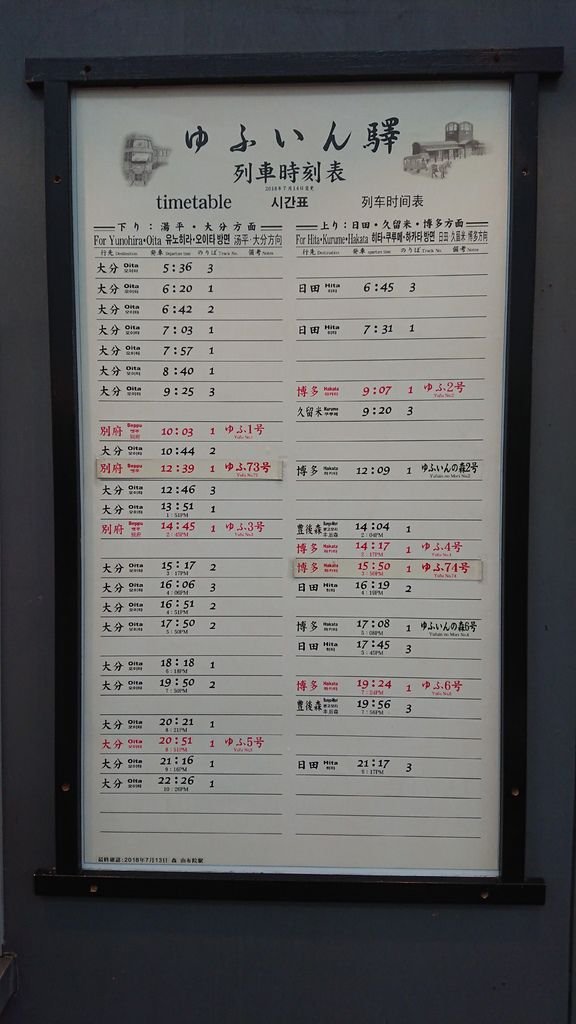 ゆふいん驛
列車時刻表
2018年7月14日変更
timetable 시간표 列车时间表
下り：湯平・大分方面
For Yunohira・Oita 유노히라・오이타 방면 汤平・大分方向
行先 Destination 発車 Departure time のりば Track No. 備考 Notes
大分 Oita 오이타 5:36 3
大分 Oita 오이타 6:20 1
大分 Oita 오이타 6:42 2
大分 Oita 오이타 7:03 1
大分 Oita 오이타 7:57 1
大分 Oita 오이타 8:40 1
大分 Oita 오이타 9:25 3
別府 Beppu 벳푸 别府 10:03 1 ゆふ1号 Yufu No.1
大分 Oita 오이타 10:44 2
別府 Beppu 벳푸 别府 12:39 1 ゆふ73号 Yufu No.73
大分 Oita 오이타 12:46 3
大分 Oita 오이타 13:51 1:51PM 1
別府 Beppu 벳푸 别府 14:45 2:45PM 1 ゆふ3号 Yufu No.3
大分 Oita 오이타 15:17 3:17PM 2
大分 Oita 오이타 16:06 4:06PM 3
大分 Oita 오이타 16:51 4:51PM 2
大分 Oita 오이타 17:50 5:50PM 2
大分 Oita 오이타 18:18 6:18PM 1
大分 Oita 오이타 19:50 7:50PM 2
大分 Oita 오이타 20:21 8:21PM 1
大分 Oita 오이타 20:51 8:51PM 1 ゆふ5号 Yufu No.5
大分 Oita 오이타 21:16 9:16PM 1
大分 Oita 오이타 22:26 10:26PM 1
上り：日田・久留米・博多方面
For Hita・Kurume・Hakata 히타・쿠루메・하카타 방면 日田 久留米 博多方向
行先 Destination 発車 Departure time のりば Track No. 備考 Notes
日田 Hita 히타 6:45 3
日田 Hita 히타 7:31 1
博多 Hakata 하카타 9:07 1 ゆふ2号 Yufu No.2
久留米 Kurume 쿠루메 9:20 3
博多 Hakata 하카타 12:09 1 ゆふいんの森2号 Yufuin no Mori No.2
豊後森 14:04 2:04PM 1
博多 Hakata 하카타 14:17 2:17PM 1 ゆふ4号 Yufu No.4
博多 Hakata 하카타 15:50 3:50PM 1 ゆふ74号 Yufu No.74
日田 Hita 히타 16:19 4:19PM 2
博多 Hakata 하카타 17:08 5:08PM 1 ゆふいんの森6号 Yufuin no Mori No.6
日田 Hita 히타 17:45 5:45PM 3
博多 Hakata 하카타 19:24 7:24PM 1 ゆふ6号 Yufu No.6
豊後森 19:56 7:56PM 3
日田 Hita 히타 21:17 9:17PM 3
最終確認：2018年7月13日 森 由布院駅